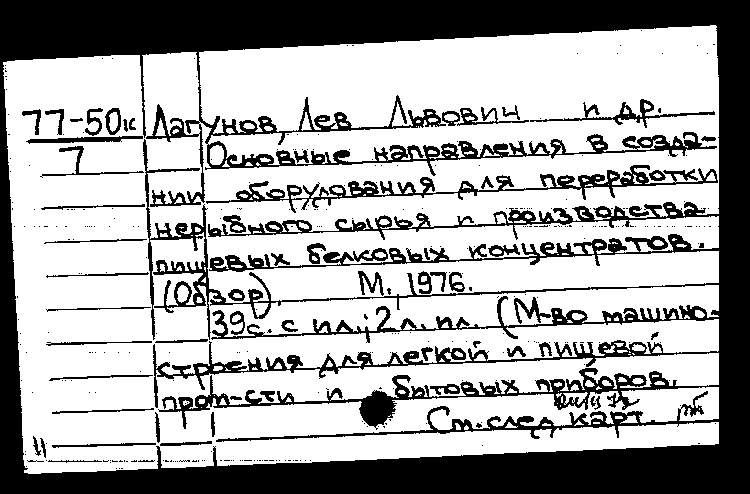 77-501с Лагунов, Лев Львович и др.
7 Основные направления в созда-
нии оборудования для переработки
нерыбного сырья и производства
пищевых белковых концентратов.
(Обзор). М., 1976.
39с. с ил.; 2 л. ил. (М-во машино-
строения для легкой и пищевой
пром-сти и бытовых приборов.
См. след. карт.
11